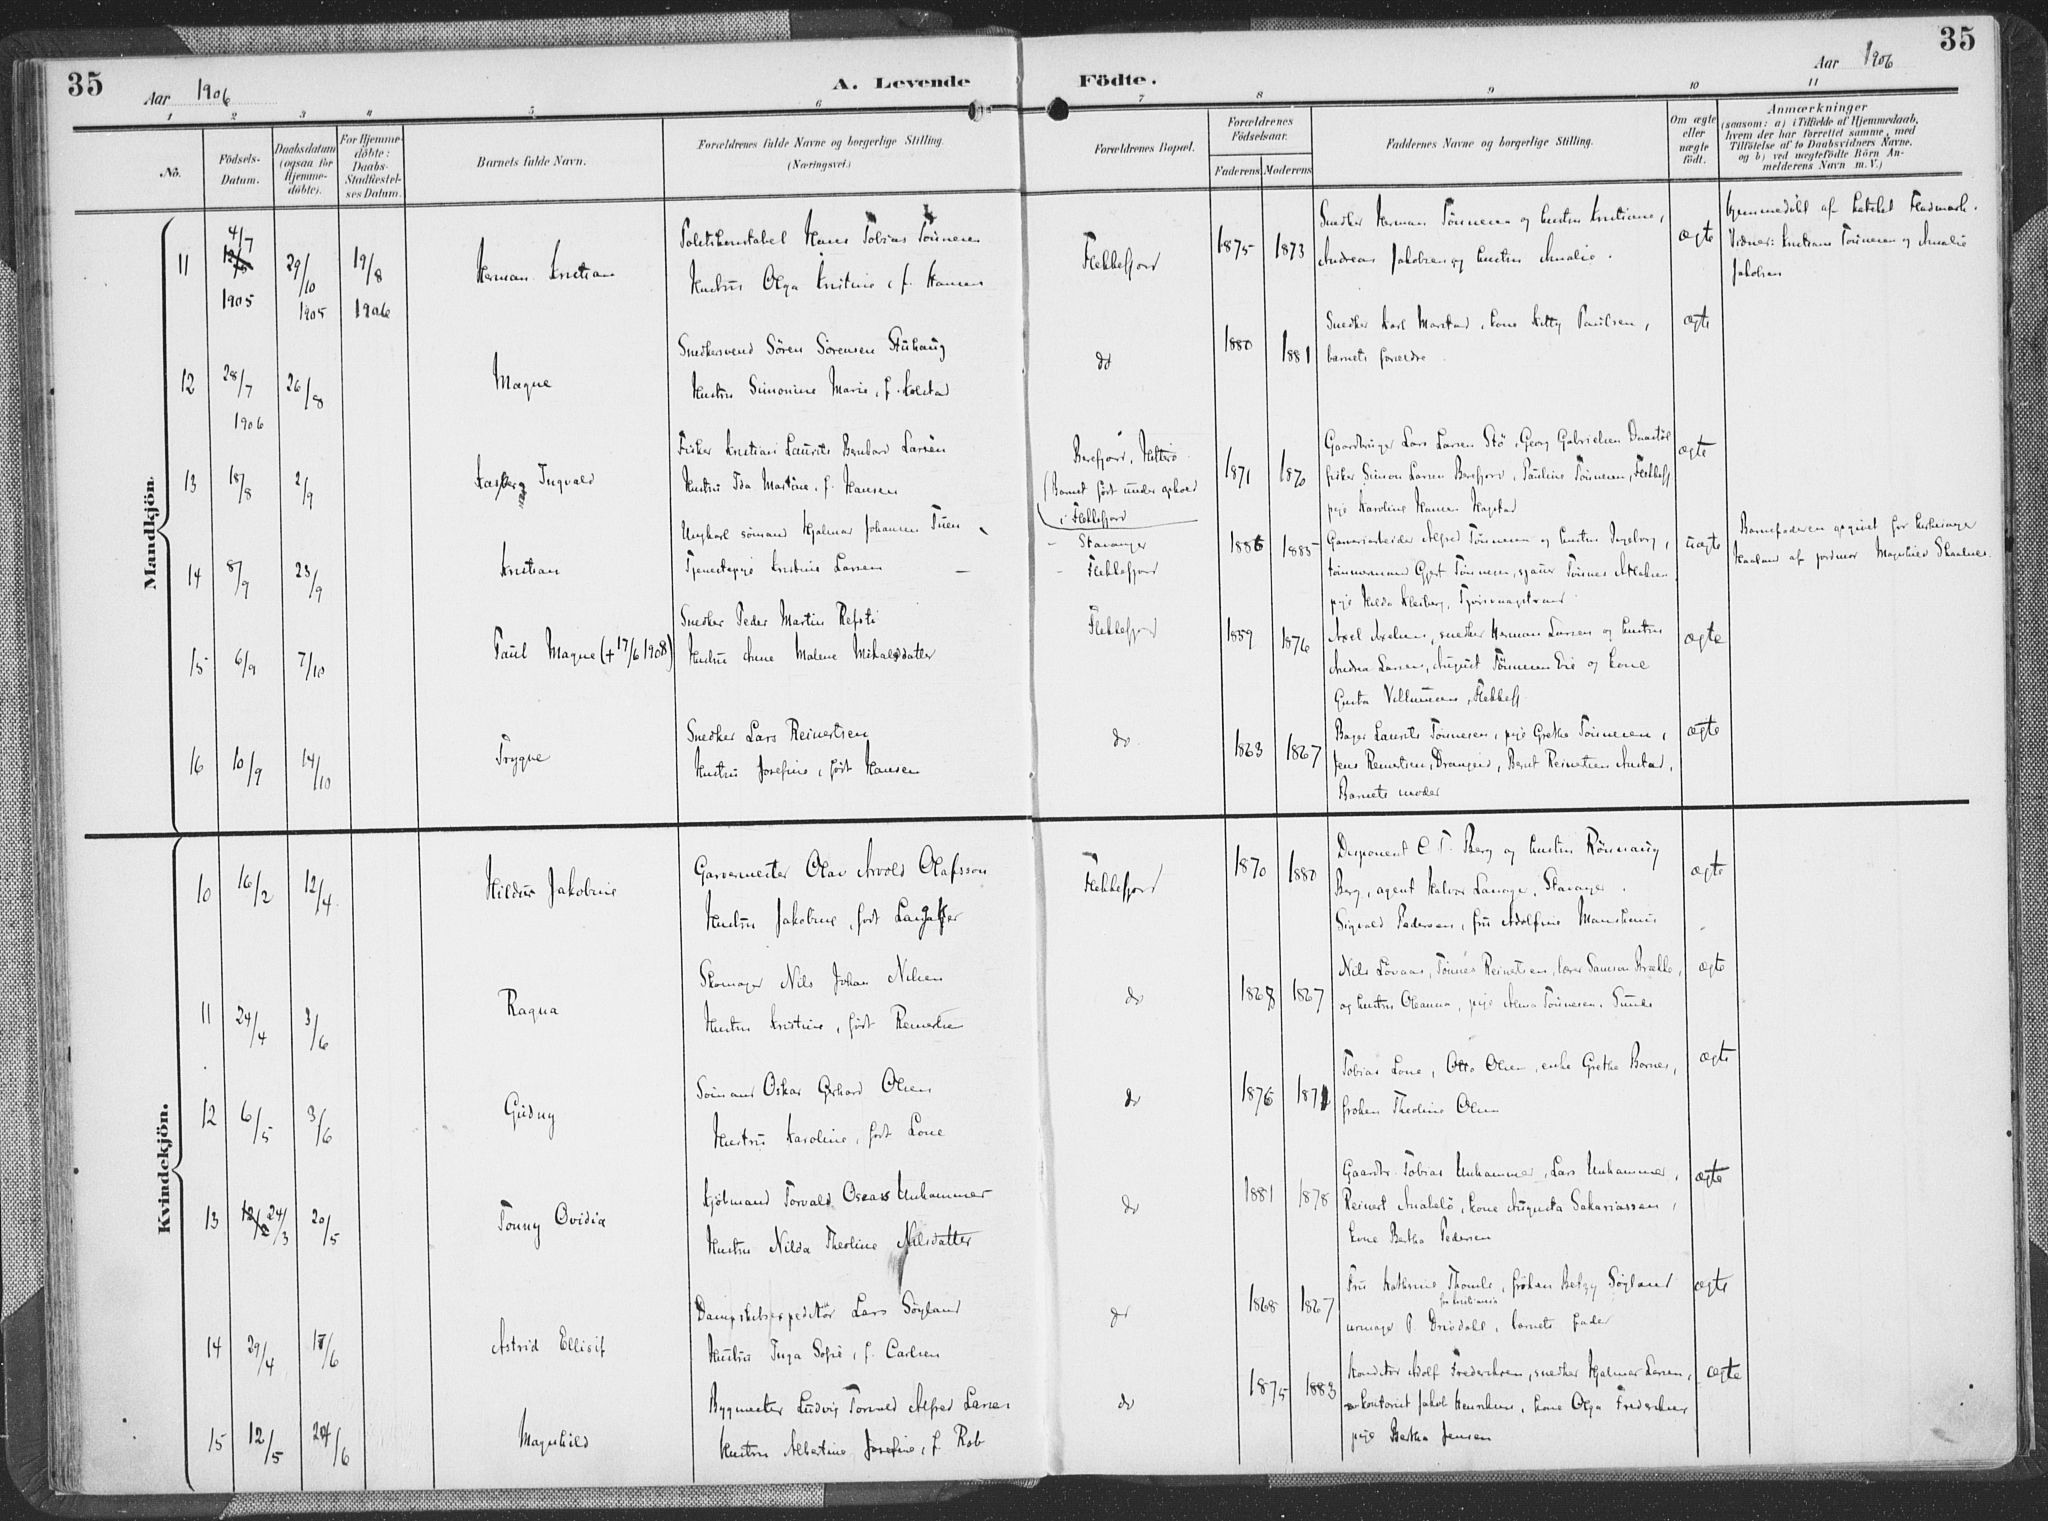 35
Aar 1906
A. Levende Födte.
Aar 1906
35
1 2 3 4 5 6 7 8 9 10 11
Nö.
Födsels-Datum.
Daabsdatum (ogsaa for Hjemmedöbte).
For Hjemmedöbte: Daabs-Stadfæstelses Datum.
Barnets fulde Navn.
Forældrenes fulde Navne og borgerlige Stilling. (Næringsvei.)
Forældrenes Bopæl.
Forældrenes Födselsaar.
Faderens Moderens
Faddernes Navne og borgerlige Stilling.
Om ægte eller uægte födt.
Anmærkninger
(saasom: a) i Tilfælde af Hjemmedaab, hvem der har forrettet samme, med Tilföielse af to Daabsvidners Navne, og b) ved uægtefödte Börn Anmelderens Navn m. V.)
Mandkjön.
11 4/7 1905 29/10 1905 19/8 1906 Herman Kristian
Politikonstabel Hans Tobias Tönnesen
Hustru Olga Kristine, f. Hansen
Flekkefjord 1875 1873
Snedker Herman Tönnesen og hustru Kristiane,
Andreas Jakobsen og hustru Amalie.
ægte
Hjemmedöbt af
Vidner: Kristiane Tönnesen og Amalie
Jakobsen
12 28/7 1906 26/8 Magne
Snedkersvend Sören Sörensen Stuhaug
Hustru Simonine Marie, f.
do 1880 1881
Snedker Karl Marstad, kone Kitty Paulsen,
barnets forældre.
ægte
13 18/8 2/9 Ingvald
Fisker Kristian Laurits Bernhard Larsen
Hustru Ida Martine, f. Hansen
Berefjord, Hitterö
(Barnet födt under ophold
i Flekkefjord
1871 1870
Gaardbruger Lars Larsen Stö, Georg Gabrielsen
fisker Simon Larsen Berefjord, Pauline Tönnesen, Flekkefj
pige Karoline Hansen
ægte
14 8/9 23/9 Kristian
Ungkarl sömand Hjalmar Johansen Tuen
Tjenestepige Kristine Larsen
- Stavanger
- Flekkefjord
1886 1885
Garveriarbeider Alfred Tönnesen og hustru Ingeborg,
tömmermand Gjert Tönnesen, Tönnes
pige Hilda
uægte
Barnefaderen opgivet for
af jordmor Magnhild
15 6/9 7/10 Paul Magne (+ 17/6 1908)
Snedker Peder Martin Refsti
Hustru Anne Malene Mikalsdatter
Flekkefjord 1859 1876
Axel Axelsen, snedker Herman Larsen og hustru
Andrea Larsen, August Tönnesen Eie og kone
Gusta Villumsen, Flekkefj.
ægte
16 10/9 14/10 Trygve
Snedker Lars Reinertsen
Hustru Josefine, födt Hansen
do. 1863 1867
Bager Laurits Tönnesen, pige Grethe Tönnesen,
Jens Reinertsen, Drangeid, Bernt Reinertsen
Barnets moder
ægte
Kvindekjön.
10 16/2 12/4 Hildur Jakobine
Garvermester Olav Arvold Olafsson
Hustru Jakobine, födt Langaker
Flekkefjord 1870 1880
Disponent C. T. Berg og hustru Rönnaug
Berg, agent Halvor Lange, Stavanger.
Sigvald Pedersen, fru Adolfine
ægte
11 24/4 3/6 Ragna
Skomager Nils Johan Nilsen
Hustru Kristine, födt Reinertsen
do 1868 1867
Nils Lövaas, Tönnes Reinertsen, lærer Samson
og hustru Oleanna, pige Alma Tönnesen, Sunde
ægte
12 6/5 3/6 Gudny
Sömand Oskar Gerhard Olsen
Hustru Karoline, födt Lone
do 1876 1871
Tobias Lone, Otto Olsen, enke Grethe
fröken Theoline Olsen
ægte
13 24/3 20/5 Tonny Ovidia
Kjöbmand Torvald Oscar Unhammer
Hustru Nilda Theoline Nilsdatter
do 1881 1878
Gaardbr. Tobias Unhammer, Lars Unhammer,
Reinert Anabelö, kone Augusta Sakariassen,
kone Bertha Pedersen
ægte
14 29/4 17/6 Astrid Ellisif
Dampskibsexpeditör Lars Söyland
Hustru Inga Sofie, f. Carlsen
do 1868 1867
Fru Kathrine fröken Betzy Söyland
fra Kristiania
urmager P. Drivdahl, barnets fader
ægte
15 12/5 24/6 Magnhild
Bygmester Ludvig Torvald Alfred Larsen
Hustru Albertine Josefine, f. Rob
do 1875 1883
Konditor Adolf Frederiksen, snedker Hjalmar Larsen,
kontorist Jakob Henriksen, kone Olga Frederiksen
pige Bertha Jensen
ægte